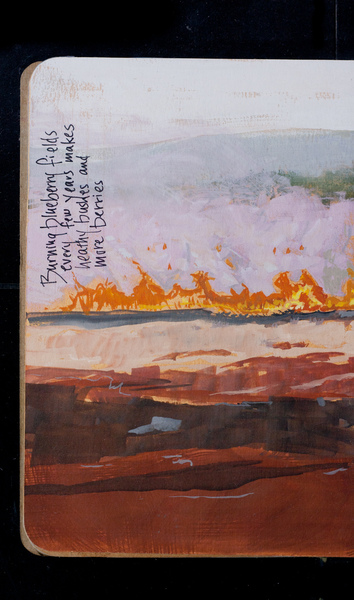 Burning blueberry fields
every few years makes
heathy bushes and
more berries